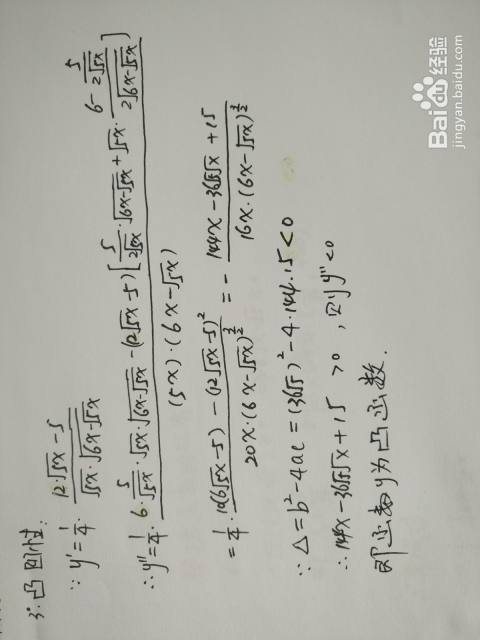 3°. 凸凹性:
∵ y' = 1/4 · (12·√5x - 5) / (√5x · √(6x-√5x))
∴ y'' = 1/4 · {6 · 5/√5x · √5x · √(6x-√5x) - (12√5x - 5) [5/(2√5x) · √(6x-√5x) + √5x · (6 - 5/(2√5x)) / (2√(6x-√5x))]} / ((5x) · (6x-√5x))
= 1/4 · (10(6√5x - 5) - (12√5x-5)²) / (20x · (6x-√5x)^(3/2)) = - (144x - 36√5√x + 15) / (16x · (6x-√5x)^(3/2))
∵ △ = b² - 4ac = (36√5)² - 4·144·15 < 0
∴ 144x - 36√5√x + 15 > 0, 则 y'' < 0
即函数y为凸函数.
Baidu经验
jingyan.baidu.com